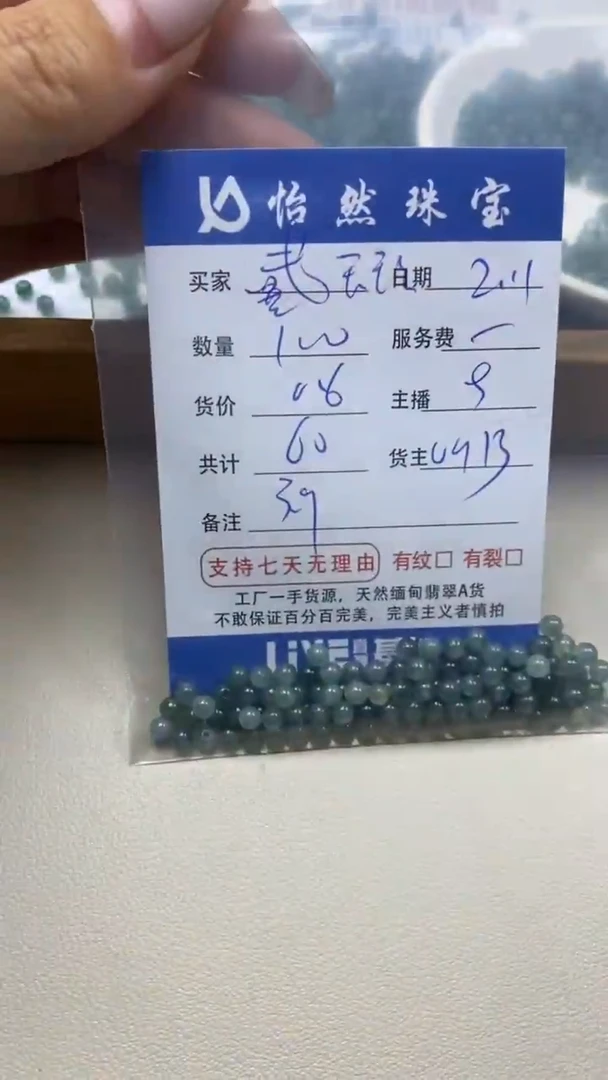 怡然珠宝
买家 日期 2.11
数量 100 服务费 一
货价 06 主播 9
共计 60 货主 0913
备注
支持七天无理由 有纹□ 有裂□
工厂一手货源，天然缅甸翡翠A货
不敢保证百分百完美，完美主义者慎拍